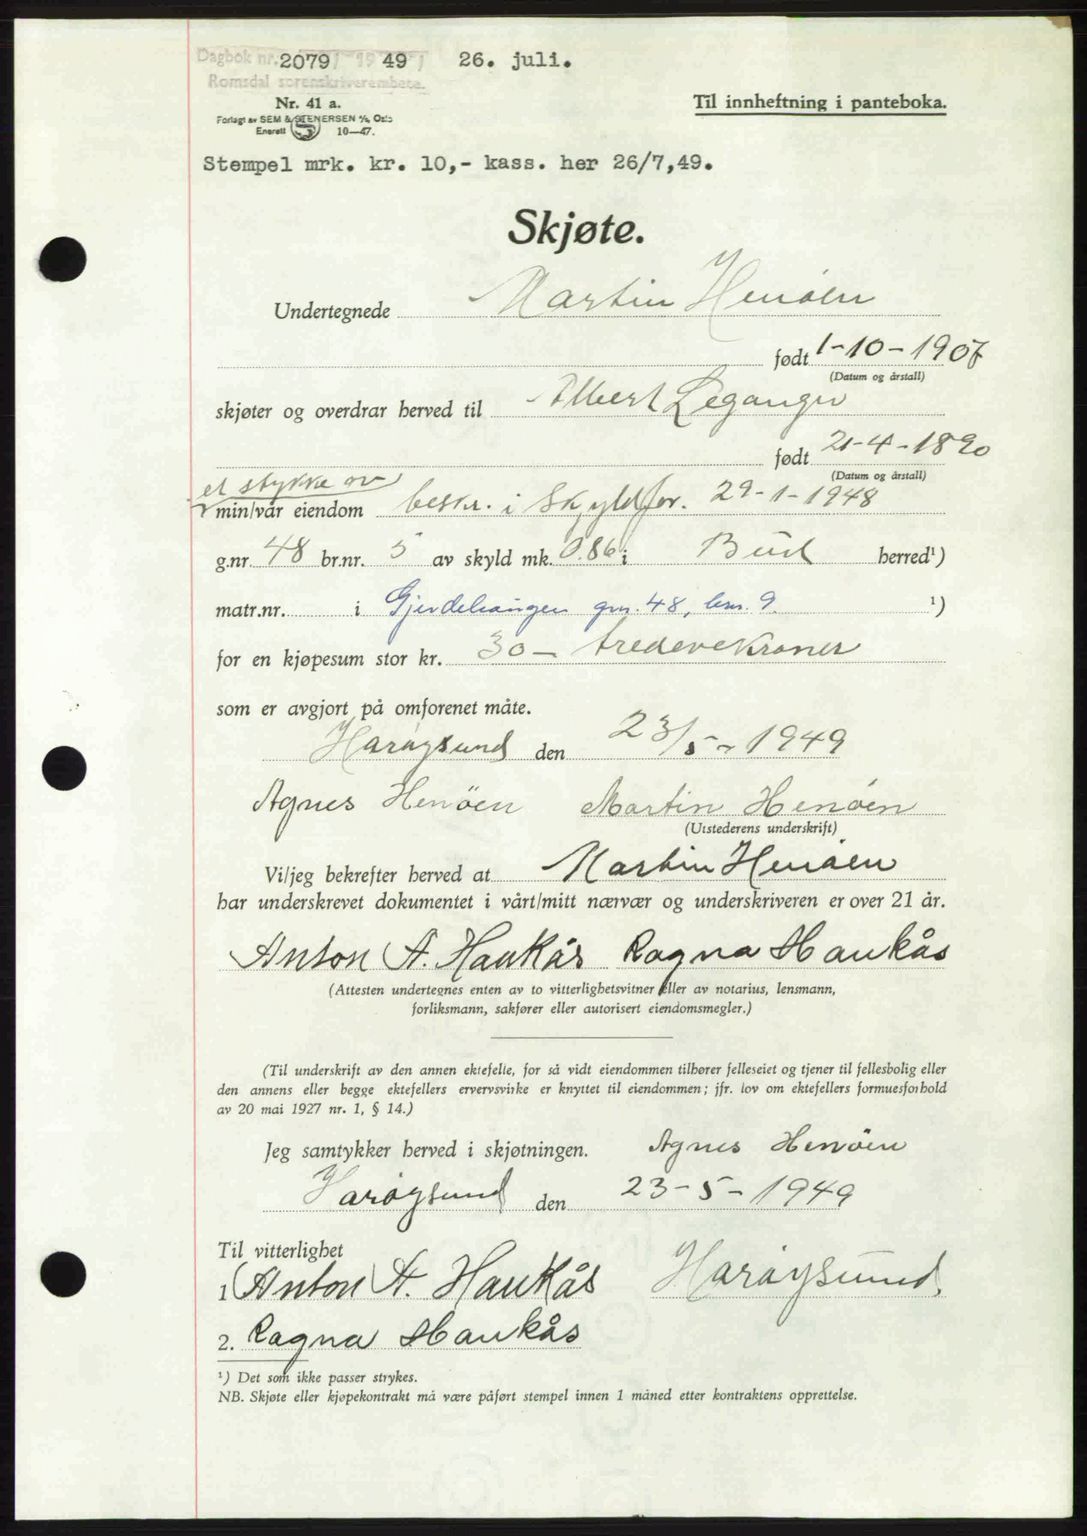 Dagbok nr. 2079 / 1949 / 26. juli.
Romsdal sorenskriverembete.
Nr. 41 a.
Til innheftning i panteboka.
Forlagt av SEM & STENERSEN A/S, Oslo
Enerett 10—47.
Stempel mrk. kr. 10,- kass. her 26/7,49.
Skjøte.
Undertegnede Martin Henøen
født 1-10-1907
(Datum og årstall)
skjøter og overdrar herved til Albert Leganger
født 21-4-1890
(Datum og årstall)
et stykke av
min/vår eiendom beskr. i Skyldfor. 29-1-1948
g.nr. 48 br.nr. 5 av skyld mk. 0.86 i Bud herred¹)
matr.nr. i Gjerdehaugen gnr. 48, bnr. 9. ¹)
for en kjøpesum stor kr. 30- tredevekroner
som er avgjort på omforenet måte.
Harøysund den 23/5-1949
Agnes Henöen Martin Henöen
(Utstederens underskrift)
Vi/jeg bekrefter herved at Martin Henøen
har underskrevet dokumentet i vårt/mitt nærvær og underskriveren er over 21 år.
Anton A. Haukås Ragna Haukås
(Attesten undertegnes enten av to vitterlighetsvitner eller av notarius, lensmann,
forliksmann, sakfører eller autorisert eiendomsmegler.)
(Til underskrift av den annen ektefelle, for så vidt eiendommen tilhører felleseiet og tjener til fellesbolig eller
den annens eller begge ektefellers ervervsvirke er knyttet til eiendommen; jfr. lov om ektefellers formuesforhold
av 20 mai 1927 nr. 1, § 14.)
Jeg samtykker herved i skjøtningen. Agnes Henöen
Harøysund den 23-5-1949
Til vitterlighet
1 Anton A. Haukås Harøysund,
2. Ragna Haukås
¹) Det som ikke passer strykes.
NB. Skjøte eller kjøpekontrakt må være påført stempel innen 1 måned etter kontraktens opprettelse.